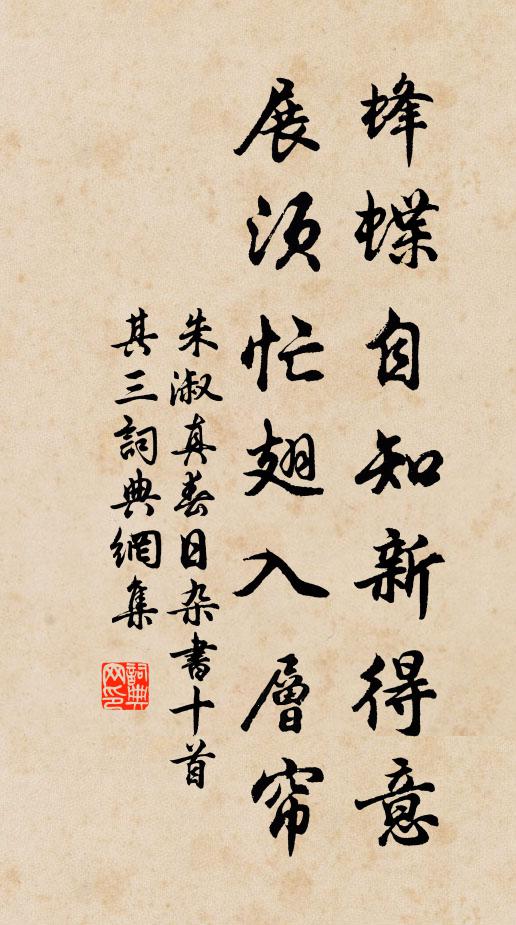 蜂蝶自知新得意
展须忙翅入層帘
朱淑真春日杂書十首
其三詞典網集
詞典网印